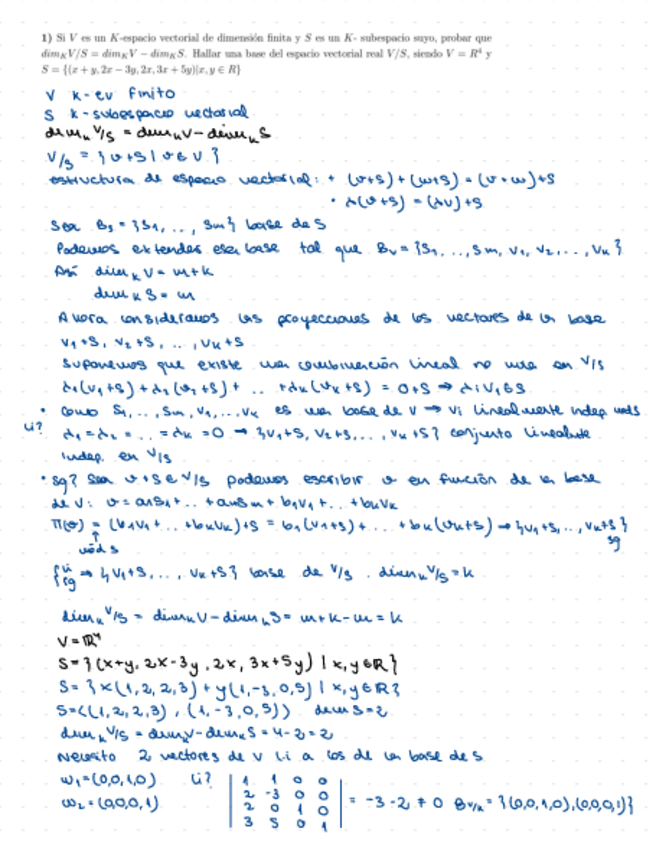 1) Si V es un K-espacio vectorial de dimensión finita y S es un K- subespacio suyo, probar que
dim_K V/S = dim_K V − dim_K S. Hallar una base del espacio vectorial real V/S, siendo V = R⁴ y
S = {(x + y, 2x − 3y, 2x, 3x + 5y)|x, y ∈ R}
V K-ev finito
S K-subespacio vectorial
dim_K V/S = dim_K V - dim_K S
V/S = {v+S | v∈V}
estructura de espacio vectorial: + (v+S) + (w+S) = (v+w)+S
• λ(v+S) = (λv)+S
Sea B_S = {S1, .., Sm} base de S
Podemos extender esa base tal que B_V = {S1, .., Sm, V1, V2, .., Vk}
Así dim_K V = m+k
dim_K S = m
Ahora consideramos las proyecciones de los vectores de la base
V1+S, V2+S, .., Vk+S
Suponemos que existe una combinación lineal no nula en V/S
λ1(V1+S) + λ2(V2+S) + .. + λk(Vk+S) = 0+S → λiVi∈S
• como S1, .., Sm, V1, .., Vk es una base de V → Vi linealmente indep mod S
li?
λ1 = λ2 = .. = λk = 0 → {V1+S, V2+S, .., Vk+S} conjunto linealmte
indep. en V/S
• Sg? Sea v+S∈V/S podemos escribir v en función de la base
de V: v = a1S1+ .. + amSm + b1V1+ .. + bkVk
Π(v) = (b1V1+ .. + bkVk)+S = b1(V1+S) + .. + bk(Vk+S) → {V1+S, .., Vk+S}
↑
mód S
sg
{li
sg → {V1+S, .., Vk+S} base de V/S . dim_K V/S = k
dim_K V/S = dim_K V - dim_K S = m+k-m = k
V = ℝ⁴
S = {(x+y, 2x-3y, 2x, 3x+5y) | x,y∈ℝ}
S = {x(1,2,2,3) + y(1,-3,0,5) | x,y∈ℝ}
S = <(1,2,2,3), (1,-3,0,5)> dim S = 2
dim_K V/S = dim_K V - dim_K S = 4-2 = 2
Necesito 2 vectores de V l.i a los de la base de S
w1 = (0,0,1,0) li? | 1 1 0 0 |
w2 = (0,0,0,1) | 2 -3 0 0 |
| 2 0 1 0 | = -3-2 ≠ 0 B_V/S = {(0,0,1,0),(0,0,0,1)}
| 3 5 0 1 |